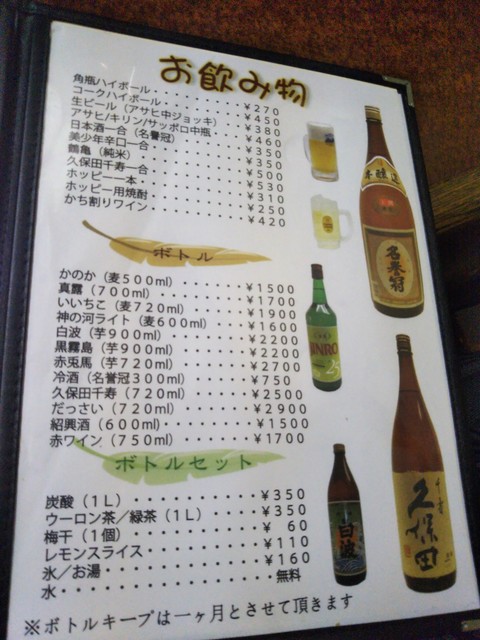 お飲み物
角瓶ハイボール・・・・・・・・・¥270
コークハイボール・・・・・・・・¥450
生ビール（アサヒ中ジョッキ）・・¥380
アサヒ/キリン/サッポロ中瓶・・¥460
日本酒一合（名誉冠）・・・・・・¥350
美少年辛口一合・・・・・・・・・¥350
鶴亀（純米）・・・・・・・・・・¥500
久保田千寿一合・・・・・・・・・¥530
ホッピー一本・・・・・・・・・・¥310
ホッピー用焼酎・・・・・・・・・¥250
かち割りワイン・・・・・・・・・¥420
ボトル
かのか（麦500ml）・・・・・・・¥1500
真露（700ml）・・・・・・・・・¥1700
いいちこ（麦720ml）・・・・・・¥1900
神の河ライト（麦600ml）・・・・¥1600
白波（芋900ml）・・・・・・・・¥2200
黒霧島（芋900ml）・・・・・・・¥2200
赤兎馬（芋720ml）・・・・・・・¥2700
冷酒（名誉冠300ml）・・・・・・¥750
久保田千寿（720ml）・・・・・・¥2500
だっさい（720ml）・・・・・・・¥2900
紹興酒（600ml）・・・・・・・・¥1500
赤ワイン（750ml）・・・・・・・¥1700
ボトルセット
炭酸（1L）・・・・・・・・・・・¥350
ウーロン茶／緑茶（1L）・・・・・¥350
梅干（1個）・・・・・・・・・・・¥ 60
レモンスライス・・・・・・・・・・¥110
氷／お湯・・・・・・・・・・・・・¥160
水・・・・・・・・・・・・・・・・無料
※ボトルキープは一ヶ月とさせて頂きます
本醸造
名誉冠
JINRO
25
白波
千寿
久保田